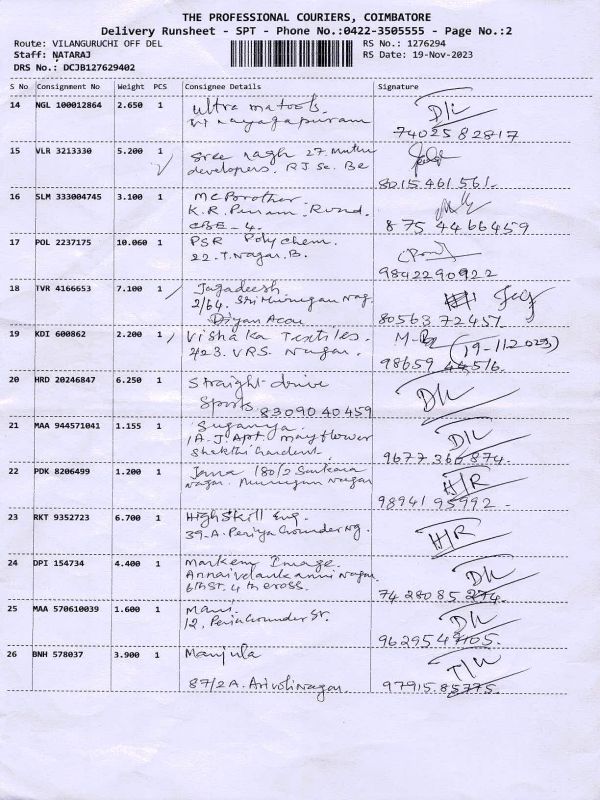 THE PROFESSIONAL COURIERS, COIMBATORE
Delivery Runsheet - SPT - Phone No.:0422-3505555 - Page No.:2
Route: VILANGURUCHI OFF DEL
RS No.: 1276294
Staff: NATARAJ
RS Date: 19-Nov-2023
DRS No.: DCJB127629402
S No Consignment No Weight PCS Consignee Details Signature
14 NGL 100012864 2.650 1 Ultra matools.
Vinayagapuram
D/c
7402582817
15 VLR 3213330 5.200 1 Sree nagh 27 Muthu
developers. RJ Se. Be
8015461561.
16 SLM 333004745 3.100 1 McBrother
K.R. Puram. Round.
CBE-4.
875 4466459
17 POL 2237175 10.060 1 PSR Polychem.
22. T. Nagar. B.
9842290922
18 TVR 4166653 7.100 1 Jagadeesh.
2/64. Sri Murugan Nag.
80563 72457.
19 KDI 600862 2.200 1 Vishaka Textiles.
423. VRS. Nagar.
(19-11-2023)
98659 44516.
20 HRD 20246847 6.250 1 Straight-drive
Sports 8309040459
D/c
21 MAA 944571041 1.155 1 Suganya.
1A. J Apt. mayflower
Shakthi Garden.
D/c
9677 366874.
22 PDK 8206499 1.200 1 Jana 180/2 Sankara
Nagar. Murugan Nagar
H/R
98941 95992 -
23 RKT 9352723 6.700 1 HighSkill Eng.
39-A. Periya Gounder Ng.
H/R
24 DPI 154734 4.400 1 Markem Image.
Annai velankanni Nagar.
6th ST. 4th cross.
D/c
74 28085 274.
25 MAA 570610039 1.600 1
12. Peria Gounder St.
D/c
96295 47105.
26 BNH 578037 3.900 1 Manjula
87/2A. Arivoli Nagar.
97915.85775.